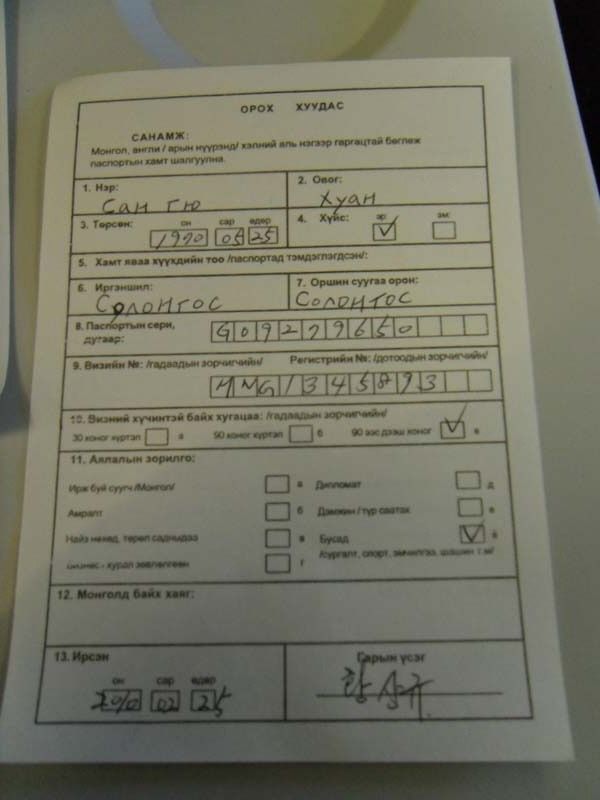 ОРОХ ХУУДАС
САНАМЖ:
Монгол, англи / арын нүүрэнд/ хэлний аль нэгээр гаргацтай бөглөж
паспортын хамт шалгуулна.
1. Нэр:
Сан гю
2. Овог:
Хуан
3. Төрсөн:
он сар өдөр
1990 05 25
4. Хүйс:
эр: эм:
5. Хамт яваа хүүхдийн тоо /паспортад тэмдэглэгдсэн/:
6. Иргэншил:
Солонгос
7. Оршин суугаа орон:
Солонгос
8. Паспортын сери,
дугаар:
G09279650
9. Визийн №: /гадаадын зорчигчийн/ Регистрийн №: /дотоодын зорчигчийн/
MMG1345893
10. Визний хүчинтэй байх хугацаа: /гадаадын зорчигчийн/
30 хоног хүртэл а 90 хоног хүртэл б 90 ээс дээш хоног в
11. Аялалын зорилго:
Ирж буй суугч /Монгол/ а Дипломат д
Амралт б Дамжин / түр саатах е
Найз нөхөд, төрөл садныдаа в Бусад
Бизнес - хурал зөвлөлгөөн г /сургалт, спорт, эмчилгээ, шашин г.м/
12. Монголд байх хаяг:
13. Ирсэн
он сар өдөр
02 25
Гарын үсэг
황 상규